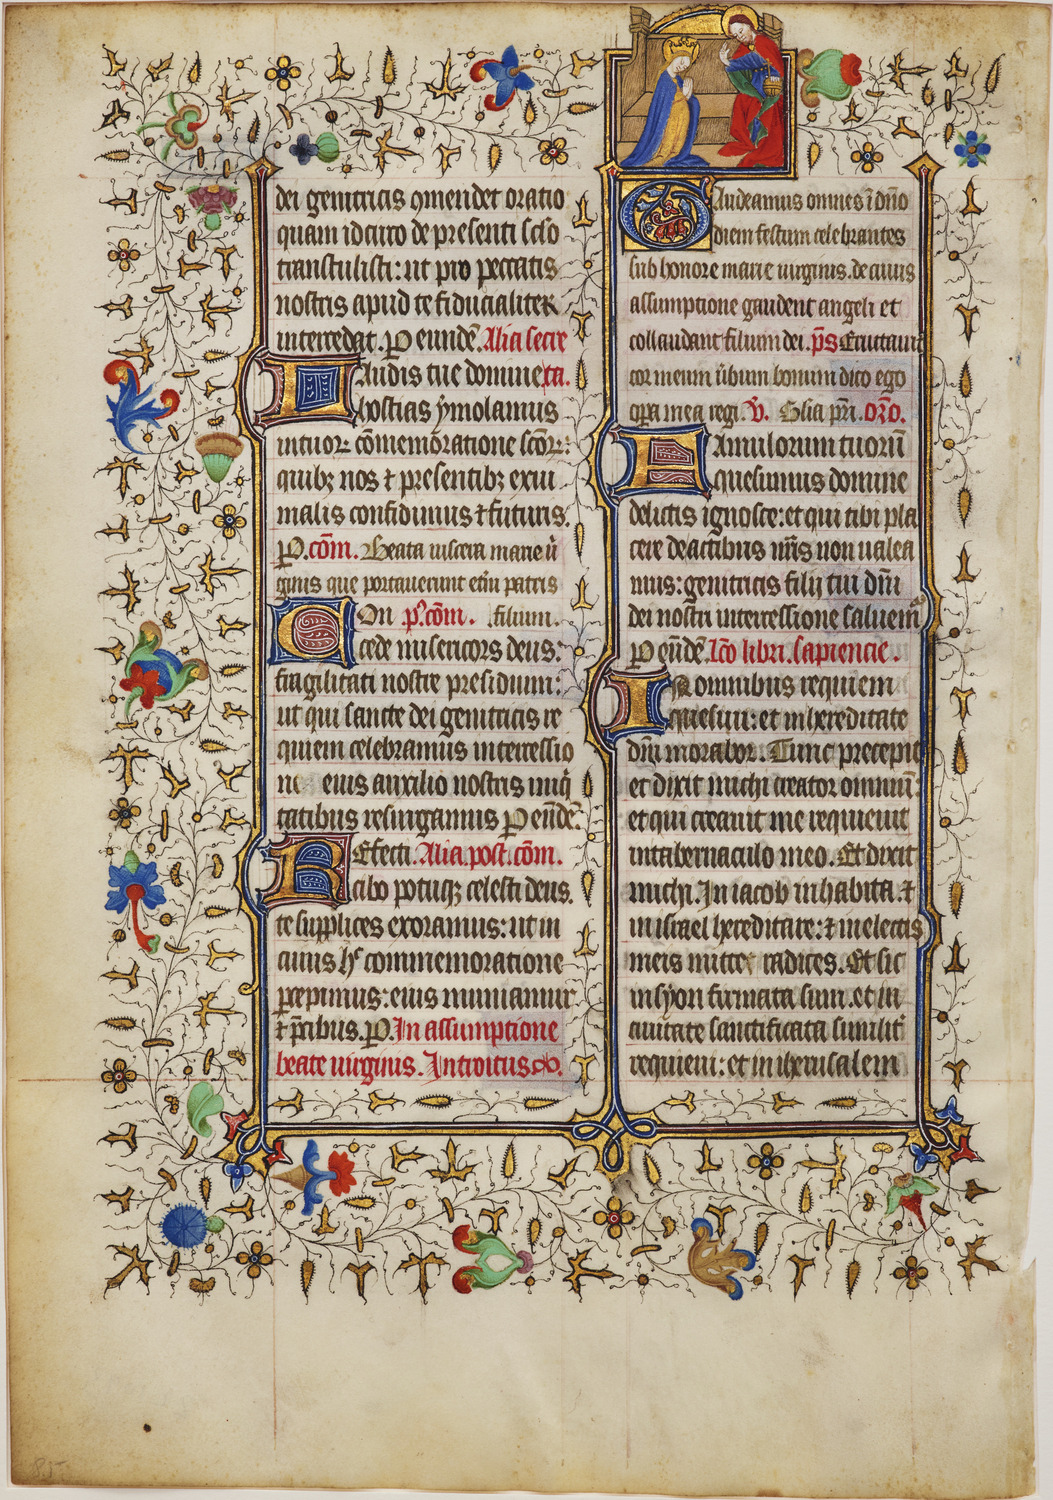 dei genitricis ꝯmendet oratio
quam idcirco de presenti sclo
transtulisti: ut pro peccatis
nostris apud te fiducialiter
intercedat. P eundē. Alia secre
Laudis tue domine ta.
hostias ymolamus
in tuorꝝ cōmemoratione scōꝝ:
quibꝫ nos ⁊ presentibꝫ exui
malis confidimus ⁊ futuris.
P. cōm. Beata viscera marie v̄
ginis que portauerunt etn̄i patris
Con p̄. cōm. filium.
cede misericors deus:
fragilitati nostre presidium:
ut qui sancte dei genitricis re
quiem celebramus intercessio
nis eius auxilio nostris iniq̄
tatibus resurgamus P eūdē.
Refecti. Alia post. cōm.
cibo potuqꝫ celesti deus.
te supplices exoramus: ut in
cuius hͨ commemoratione
p̄cepimus: eius muniamur
⁊ p̄cibus. P. In assumptione
beate uirginis. Introitus
Gaudeamus omnes ī dn̄o
diem festum celebrantes
sub honore marie uirginis. de cuius
assumptione gaudent angeli et
collaudant filium dei. p̄s Eructauit
cor meum ūbum bonum dico ego
oꝑa mea regi. V̄. Glia pr̄i. orō.
Famulorum tuorū
quesumus domine
delictis ignosce: et qui tibi pla
cere de actibus nr̄is non ualea
mus: genitricis filij tui dn̄i
dei nostri intercessione saluem᷑
P eūdē. lc̄o libri. sapiencie.
In omnibus requiem
quesiui: et in hereditate
dn̄i morabor. Tunc precepit
et dixit michi creator omnium:
et qui creauit me requieuit
in tabernaculo meo. Et dixit
michi. In iacob inhabita. ⁊
in israel hereditare: ⁊ in electis
meis mitte radices. Et sic
in syon firmata sum. et in
ciuitate sanctificata similit᷑
requieui: et in iherusalem